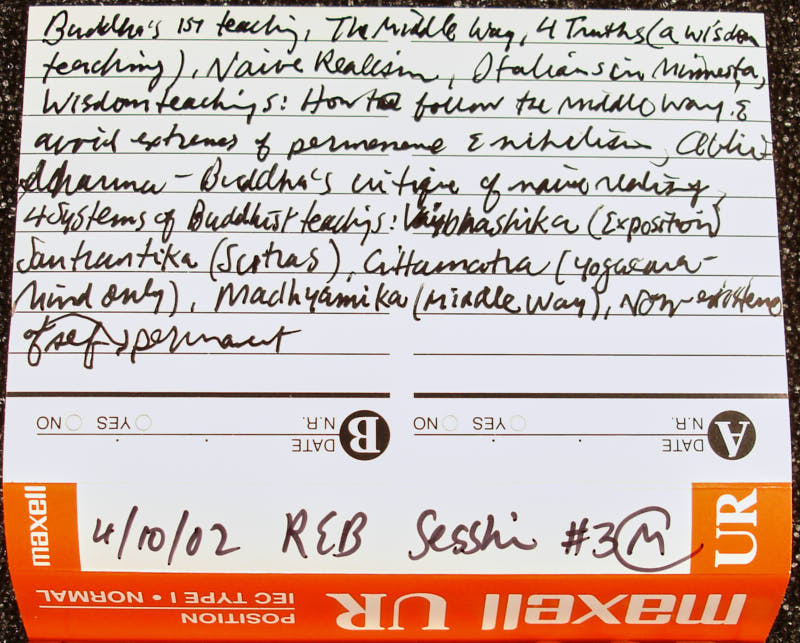 Buddha's 1st teaching, The Middle Way, 4 Truths (a wisdom
teaching), Naive Realism, Italians in Minnesota,
Wisdom teachings: How to follow the middle way &
avoid extremes of permanence & nihilism, Abhi-
dharma - Buddha's critique of naive realism,
4 Systems of Buddhist teachings: Vaibhashika (Exposition)
Sautrantika (Sutras), Cittamatra (Yogacara-
Mind only), Madhyamika (Middle Way), Non-existence
of self permanent
A DATE N.R. YES NO
B DATE N.R. YES NO
maxell 4/10/02 REB Sesshin #3 M UR
maxell UR POSITION IEC TYPE I • NORMAL